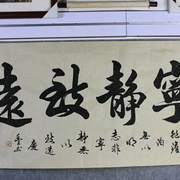 寧靜致遠
泊
無以
明
志非
寧
靜無
以
致遠